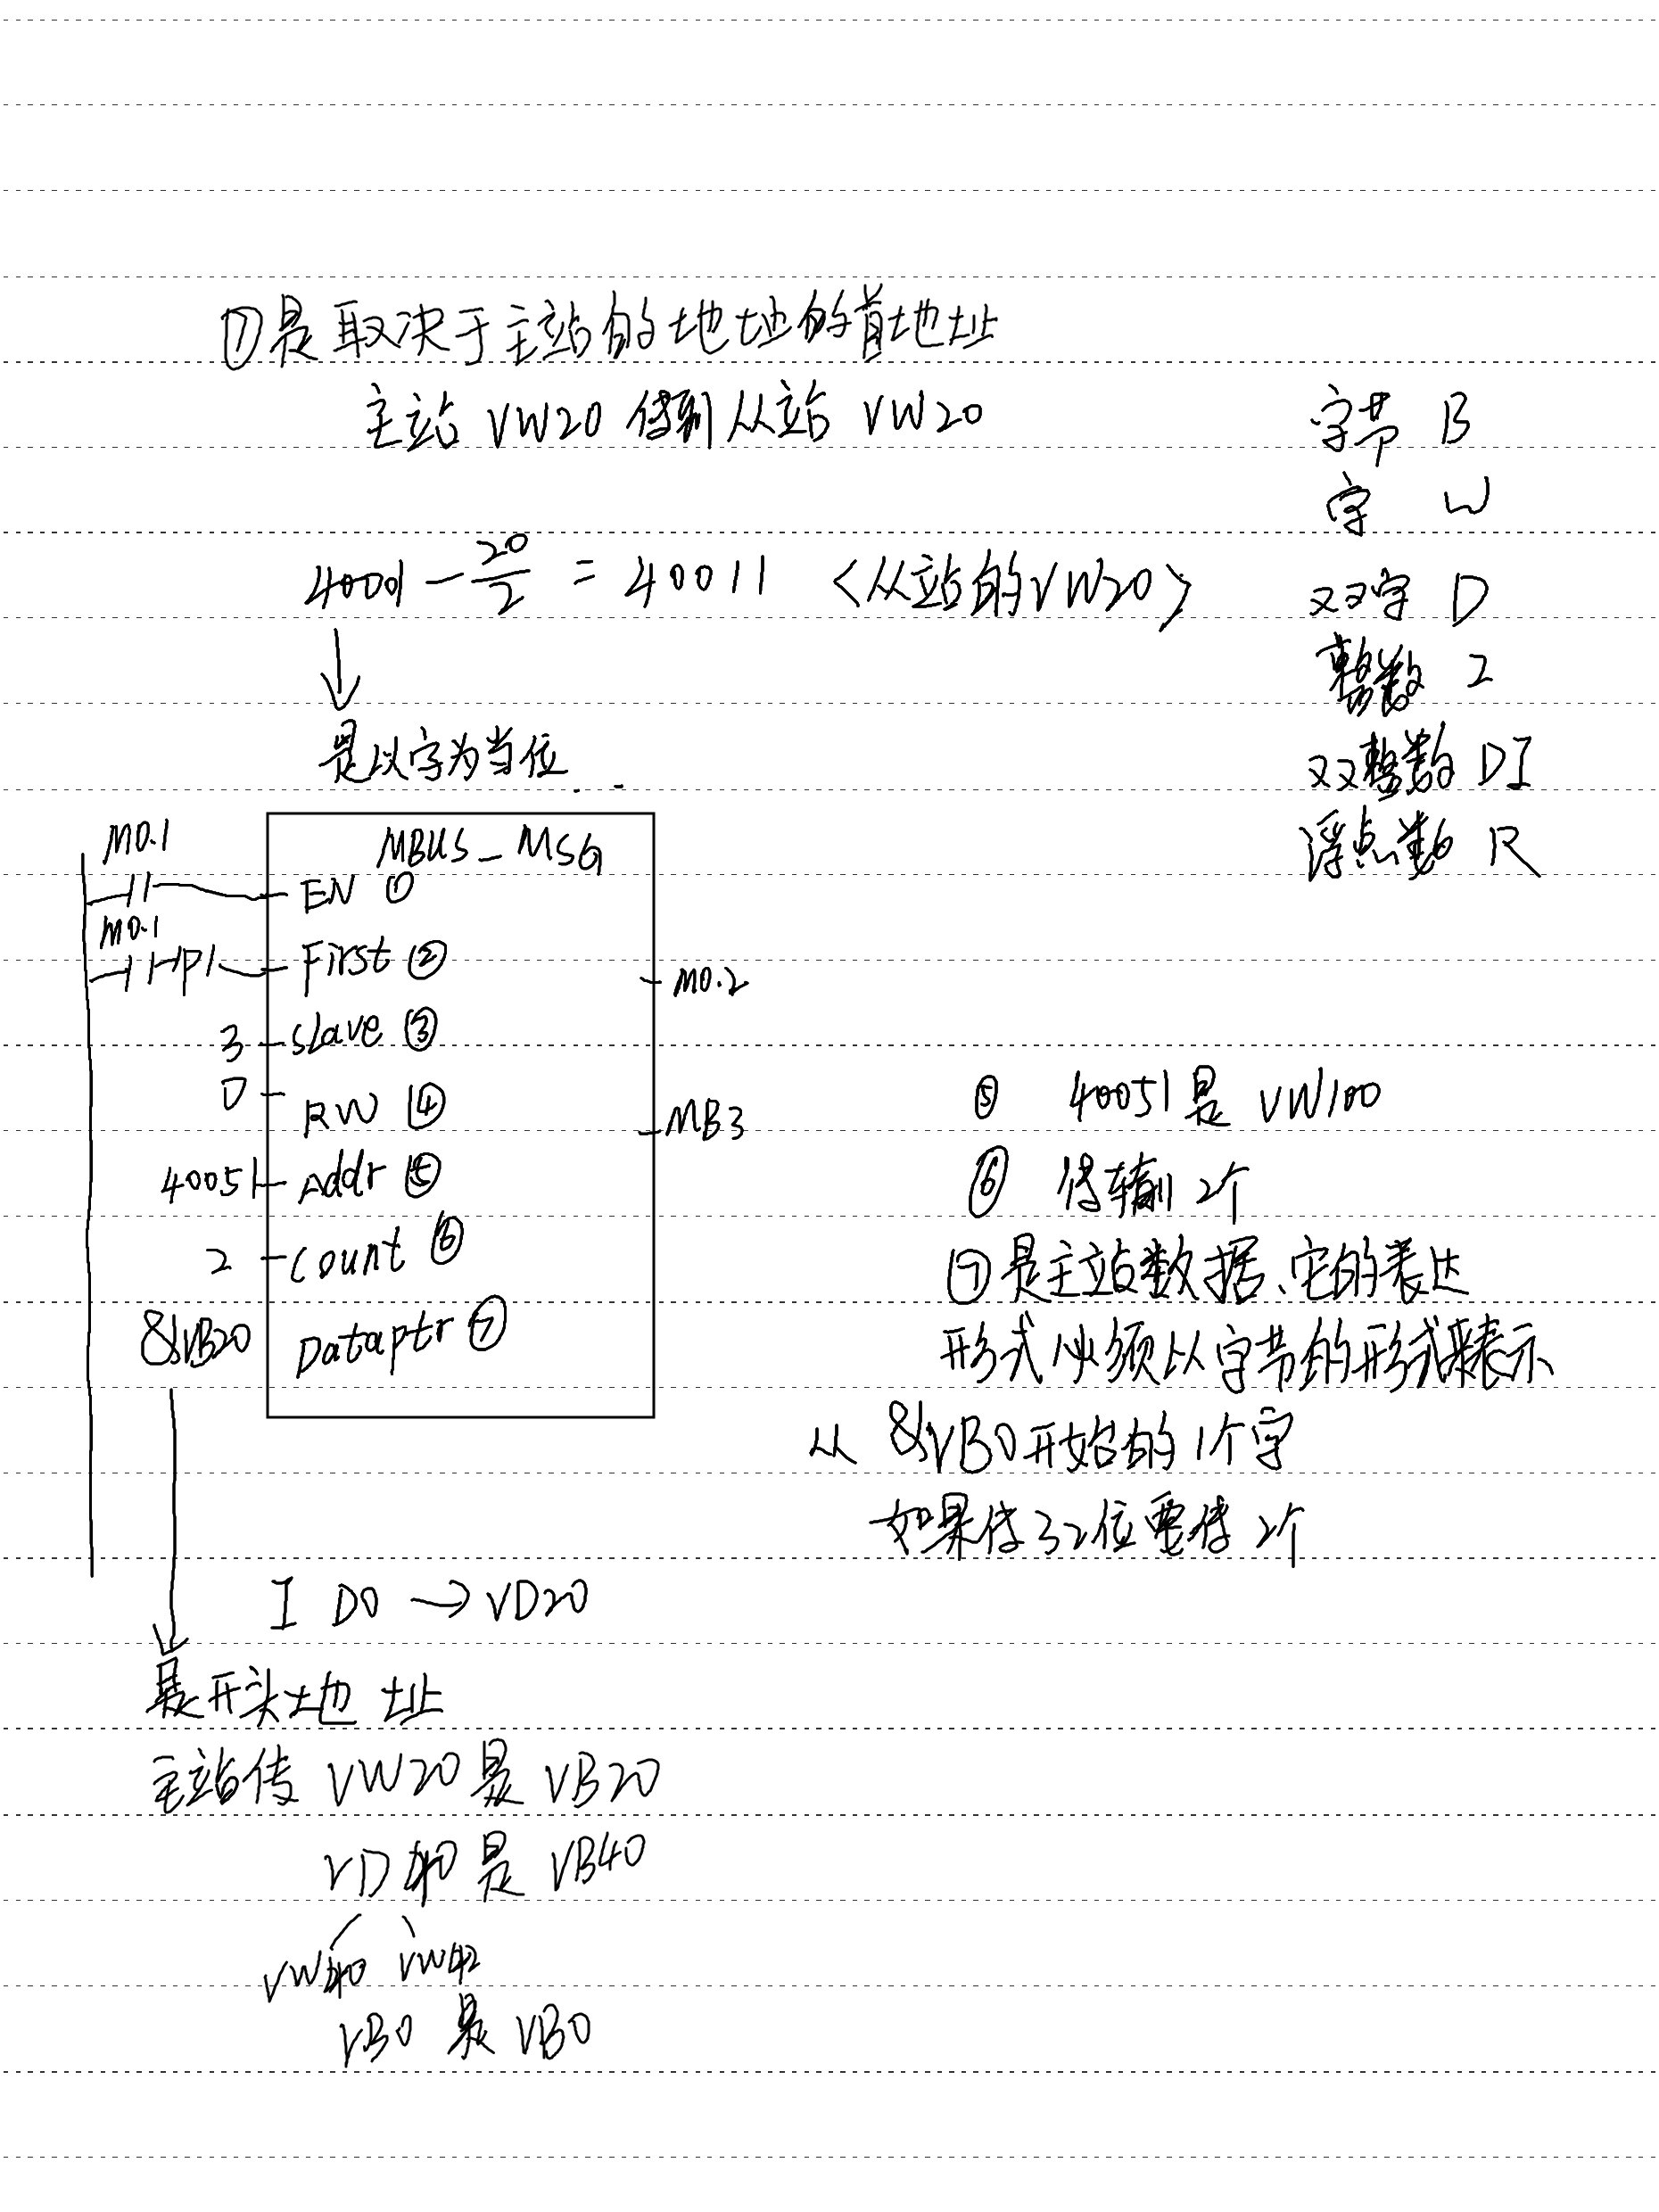 ⑦是取决于主站的地址的首地址
主站 VW20 传到从站 VW20
40001 — 20/2 = 40011 <从站的VW20>
↓
是以字为当位
字节 B
字 W
双字 D
整数 I
双整数 DI
浮点数 R
MBUS_MSG
M0.1 EN ①
M0.1 P First ②
M0.2
3 slave ③
0 RW ④
MB3
40051 Addr ⑤
2 count ⑥
&VB20 Dataptr ⑦
⑤ 40051是 VW100
⑥ 传输 2个
⑦是主站数据、它的表达
形式必须以字节的形式来表示
从 &VB0开始的1个字
如果传32位要传 2个
I D0 → VD20
是开头地址
主站传 VW20是 VB20
VD40 是 VB40
VW40 VW42
VB0 是 VB0